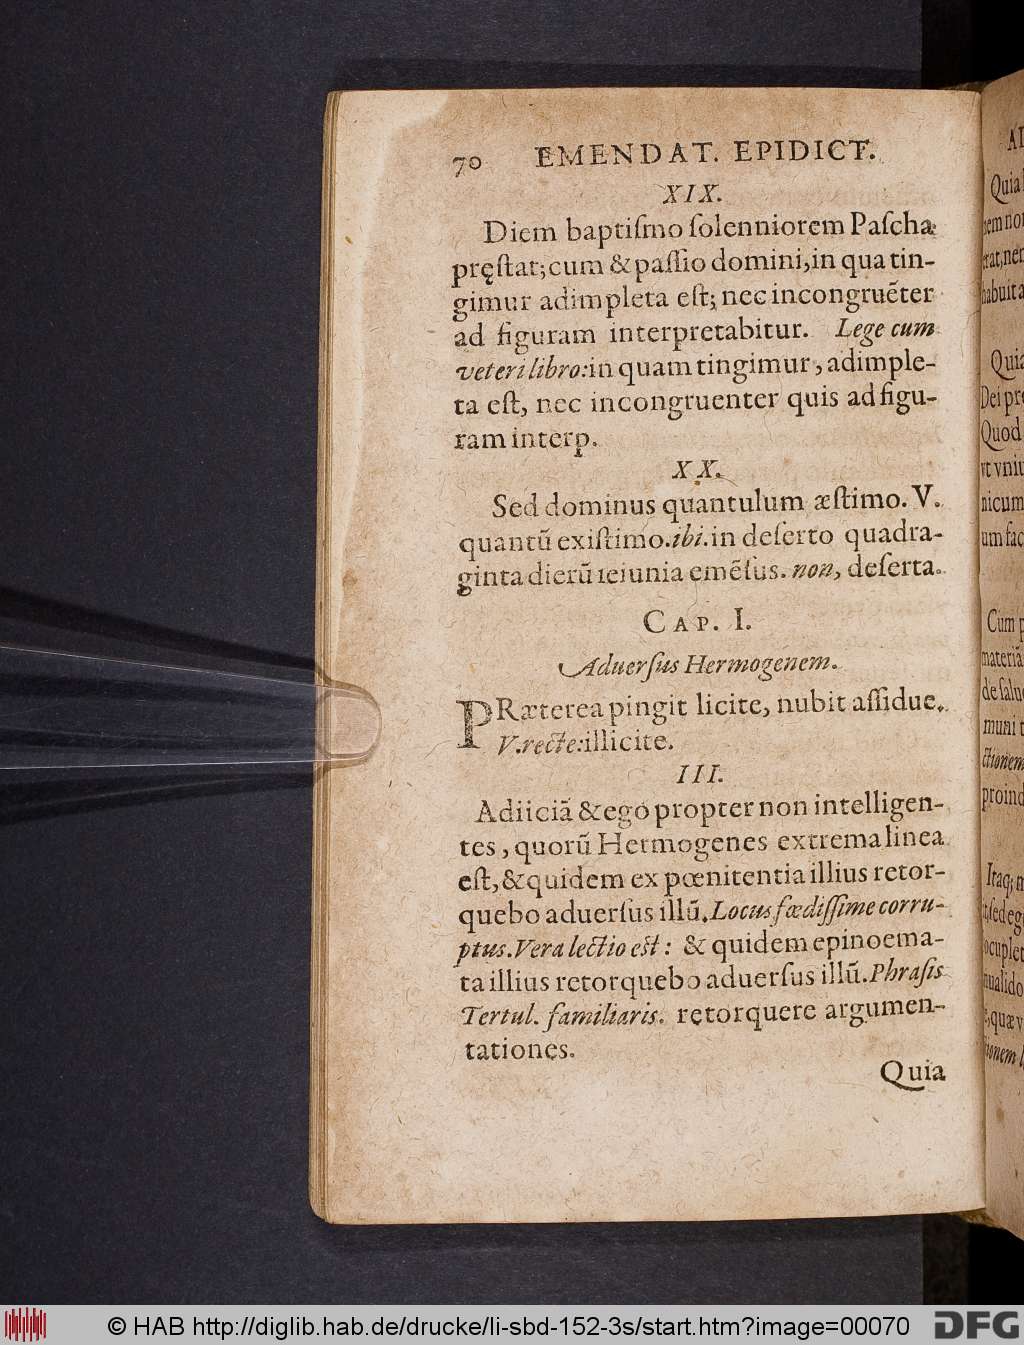 70 EMENDAT. EPIDICT.
XIX.
Diem baptiſmo ſolenniorem Paſcha
pręſtat; cum & paſſio domini, in qua tin-
gimur adimpleta eſt; nec incongruẽter
ad figuram interpretabitur. Lege cum
veteri libro: in quam tingimur, adimple-
ta eſt, nec incongruenter quis ad figu-
ram interp.
XX.
Sed dominus quantulum æſtimo. V.
quantũ exiſtimo. ibi. in deſerto quadra-
ginta dierũ ieiunia emẽſus. non, deſerta.
CAP. I.
Aduerſus Hermogenem.
PRæterea pingit licite, nubit aſſidue.
V. recte: illicite.
III.
Adiiciã & ego propter non intelligen-
tes, quorũ Hermogenes extrema linea
eſt, & quidem ex pœnitentia illius retor-
quebo aduerſus illũ. Locus fœdiſſime corru-
ptus. Vera lectio eſt: & quidem epinoema-
ta illius retorquebo aduerſus illũ. Phraſis
Tertul. familiaris. retorquere argumen-
tationes.
Quia
Quia
Quia
Dei
Quod
vt
nicum
Cum
de
muni
proind
© HAB http://diglib.hab.de/drucke/li-sbd-152-3s/start.htm?image=00070
DFG